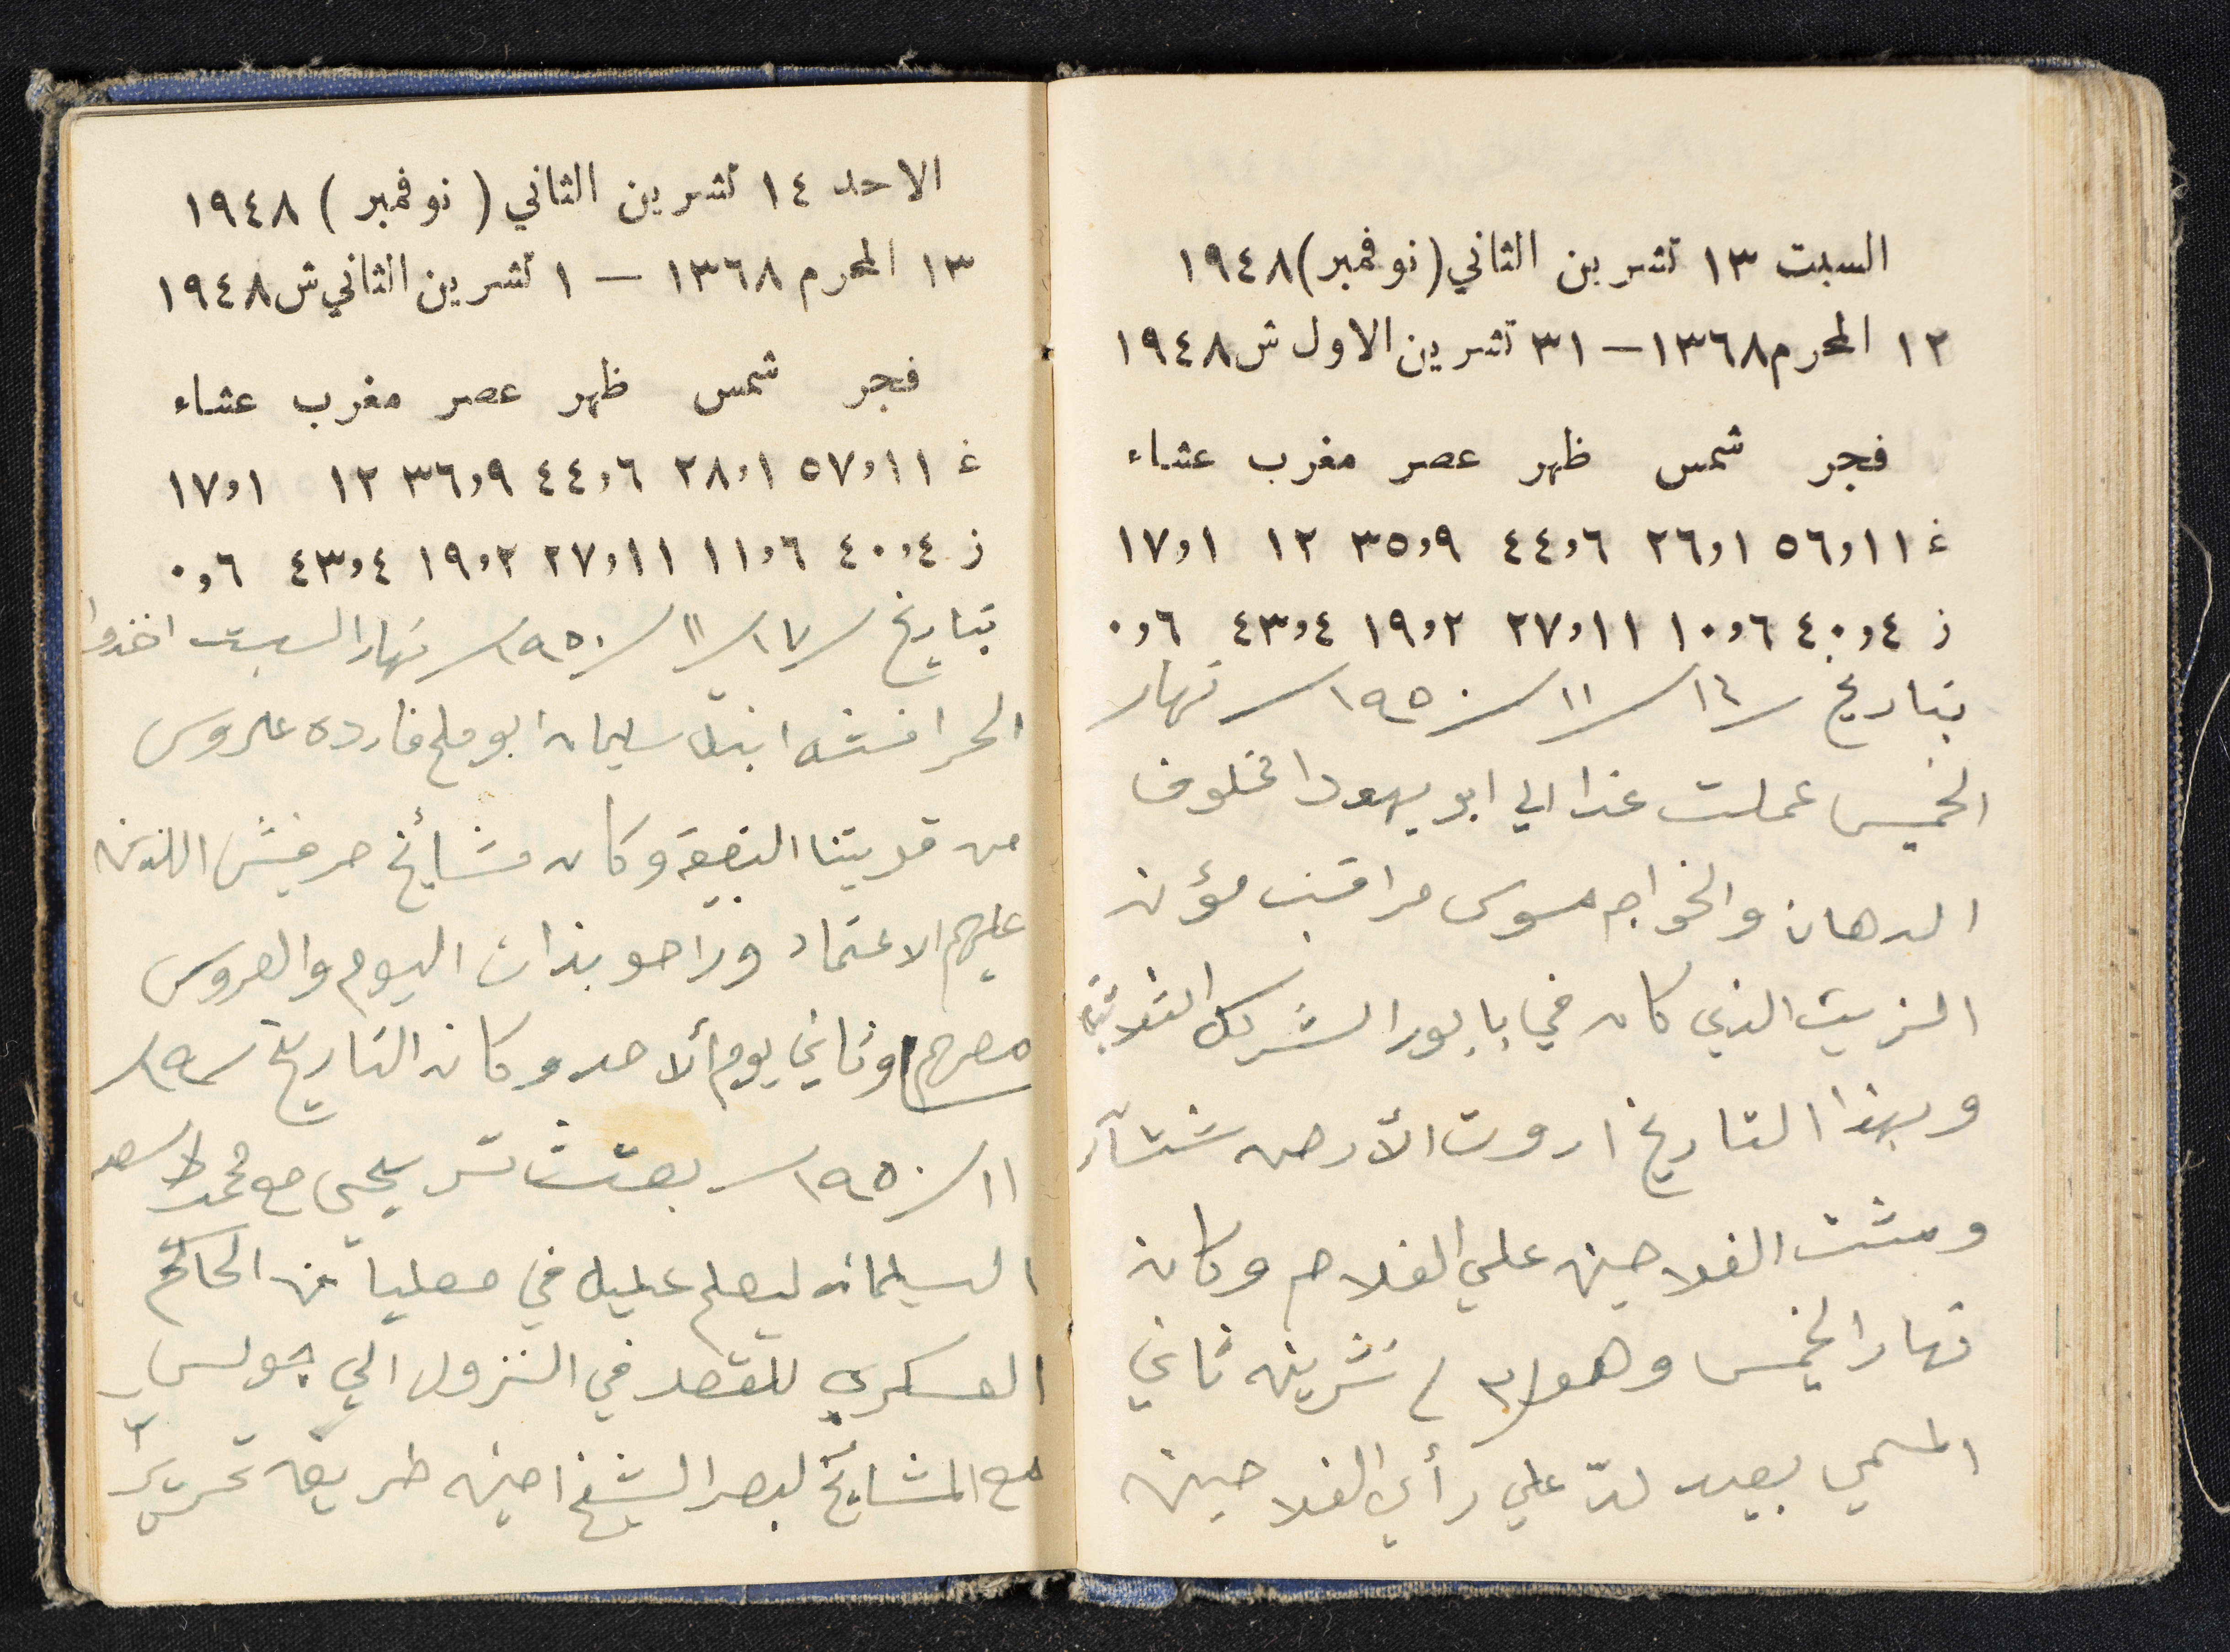 السبت ١٣ تشرين الثاني (نوفمبر) ١٩٤٨
١٢ المحرم ١٣٦٨ – ٣١ تشرين الاول ش ١٩٤٨
فجر شمس ظهر عصر مغرب عشاء
غ ٥٦,١١ ٢٦,١ ٤٤,٦ ٣٥,٩ ١٢ ١٧,١
ز ٤٠,٤ ١٠,٦ ٢٧,١١ ١٩,٢ ٤٣,٤ ٠,٦
بتاريخ ١٦/١١/١٩٥٠ نهار
الخميس عملت غدا الي ابو يهودا مخلوف
الدهان والخواجه موسى مراقب مؤن
الزيت الذي كان في بابور الشرك الثلاثة
وبهذا التاريخ اروت الأرض شتآء
ومشت الفلاحين علي الفلاح وكان
نهار الخميس وهو ٣ تشرين ثاني
المسمي بعيد لدّ علي رأي الفلاحين
الاحد ١٤ تشرين الثاني (نوفمبر) ١٩٤٨
١٣ المحرم ١٣٦٨ – ١ تشرين الثاني ش ١٩٤٨
فجر شمس ظهر عصر مغرب عشاء
غ ٥٧,١١ ٢٨,١ ٤٤,٦ ٣٦,٩ ١٢ ١٧,١
ز ٤٠,٤ ١١,٦ ٢٧,١١ ١٩,٢ ٤٣,٤ ٠,٦
بتاريخ ١٧/١١/١٩٥٠ نهار السبت اخذوا
الحرافشه ابنة سليمان ابو ملح فارده عروس
من قريتنا البقيعة وكان مشائخ حرفيش اللذين
عليهم الاعتماد وراحو بذات اليوم والعروس
معهم وثاني يوم ألاحد وكان التاريخ ١٩
١١/١٩٥٠ بعتت يحيى مع محمد اسعد
السليمان ليعلم عليه في معليا من الحاكم
العسكري للقصد في النزول الي جولس
مع المشايخ لبعد الشيخ امين طريف